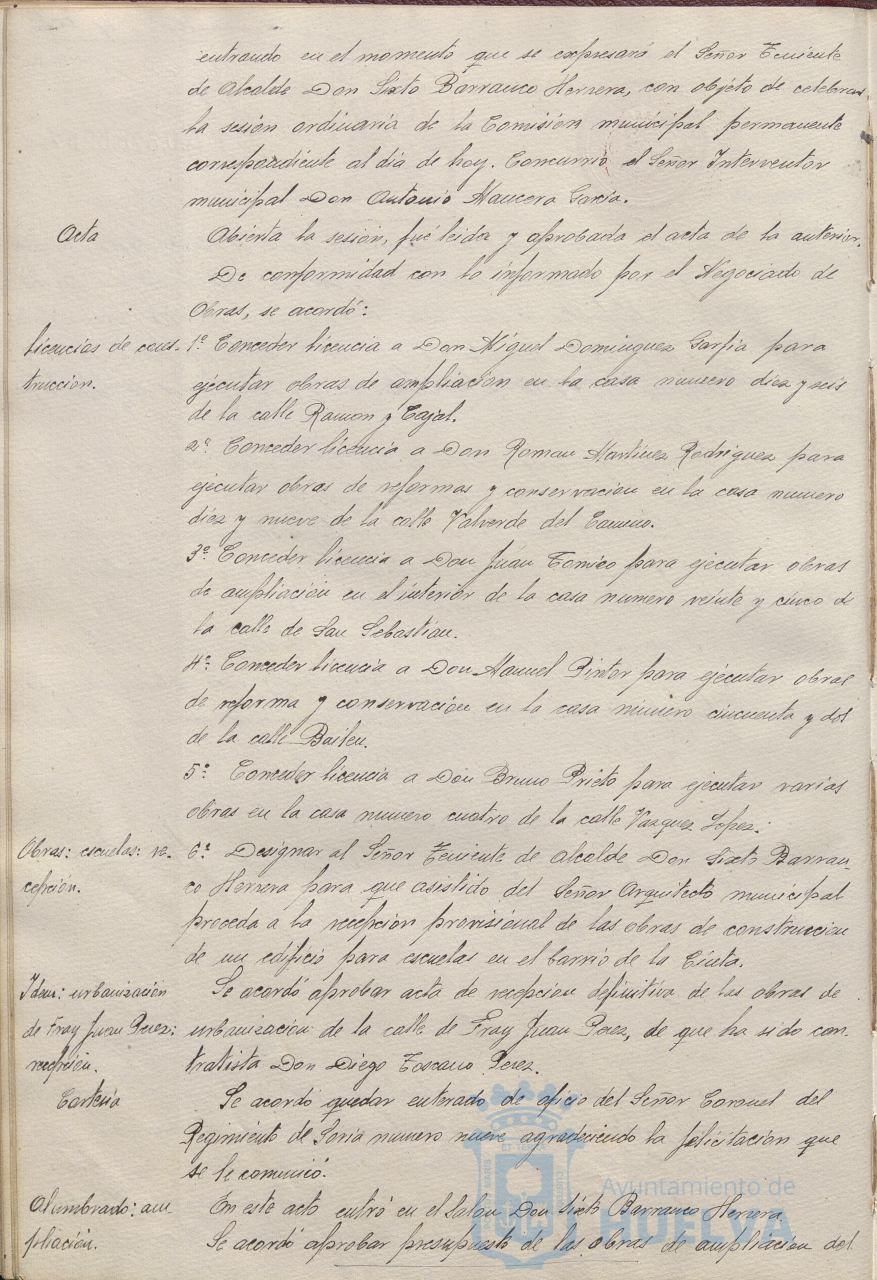 entrando en el momento que se expresará el Señor Teniente
de Alcalde Don Sixto Barranco Herrera, con objeto de celebrar
la sesión ordinaria de la Comisión municipal permanente
correspondiente al dia de hoy. Concurrió el Señor Interventor
municipal Don Antonio Mancera Garcia.
Acta
Abierta la sesión, fué leida y aprobada el acta de la anterior.
De conformidad con lo informado por el Negociado de
Obras, se acordó:
Licencias de cons-
trucción.
1º Conceder licencia a Don Miguel Dominguez Garfia para
ejecutar obras de ampliación en la casa numero diez y seis
de la calle Ramon y Cajal.
2º Conceder licencia a Don Roman Martinez Rodriguez para
ejecutar obras de reformas y conservacion en la casa numero
diez y nueve de la calle Valverde del Camino.
3º Conceder licencia a Don Juan Tomico para ejecutar obras
de ampliación en el interior de la casa numero veinte y cinco de
la calle de San Sebastian.
4º Conceder licencia a Don Manuel Pintor para ejecutar obras
de reforma y conservación en la casa numero cincuenta y dos
de la calle Bailen.
5º Conceder licencia a Don Bruno Prieto para ejecutar varias
obras en la casa numero cuatro de la calle Vazquez Lopez.
Obras: escuelas: re-
cepción.
6º Designar al Señor Teniente de Alcalde Don Sixto Barran-
co Herrera para que asistido del Señor Arquitecto municipal
proceda a la recepcion provisional de las obras de construccion
de un edificio para escuelas en el barrio de la Cinta.
Idem: urbanización
de Fray Juan Perez:
recepción.
Se acordó aprobar acta de recepcion definitiva de las obras de
urbanizacion de la calle de Fray Juan Perez, de que ha sido con-
tratista Don Diego Toscano Perez.
Cortesia
Se acordó quedar enterado de oficio del Señor Coronel del
Regimiento de Soria numero nueve agradeciendo la felicitacion que
se le comunicó.
Alumbrado: am-
pliación.
En este acto entró en el Salon Don Sixto Barranco Herrera.
Se acordó aprobar presupuesto de las obras de ampliacion del
Ayuntamiento de
HUELVA